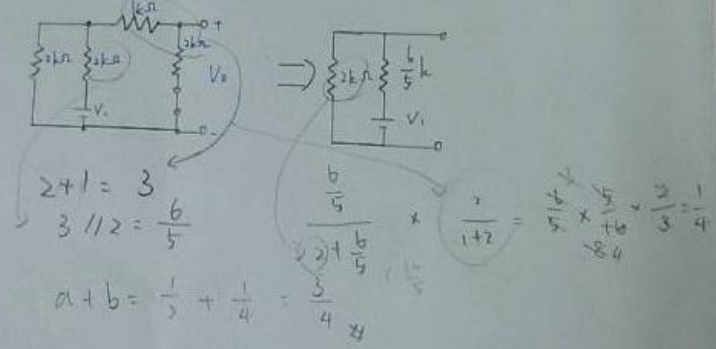 1kΩ
+
2kΩ 2kΩ 2kΩ
V₀
V₁
-
⇒
2kΩ 6/5 k
V₁
2+1= 3
3//2 = 6/5
(6/5)/(2+6/5) × 2/(1+2) = 6/5 × 5/16 × 2/3 = 1/4
a+b = 1/2 + 1/4 = 3/4